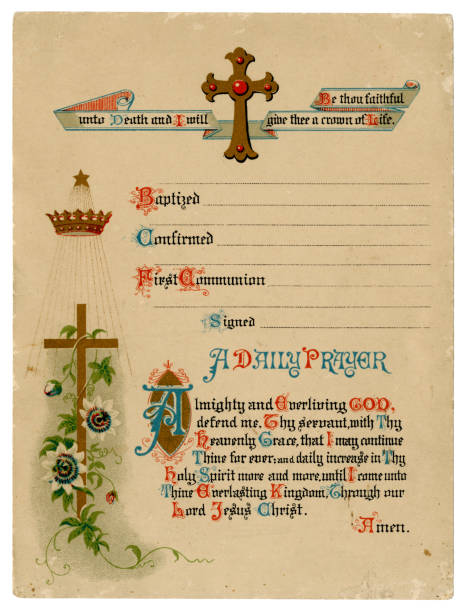 Be thou faithful
unto Death and I will give thee a crown of Life.
Baptized
Confirmed
First Communion
Signed
A DAILY PRAYER
Almighty and Everliving GOD,
defend me, Thy servant, with Thy
Heavenly Grace, that I may continue
Thine for ever; and daily increase in Thy
Holy Spirit more and more, until I come unto
Thine Everlasting Kingdom, Through our
Lord Jesus Christ.
Amen.